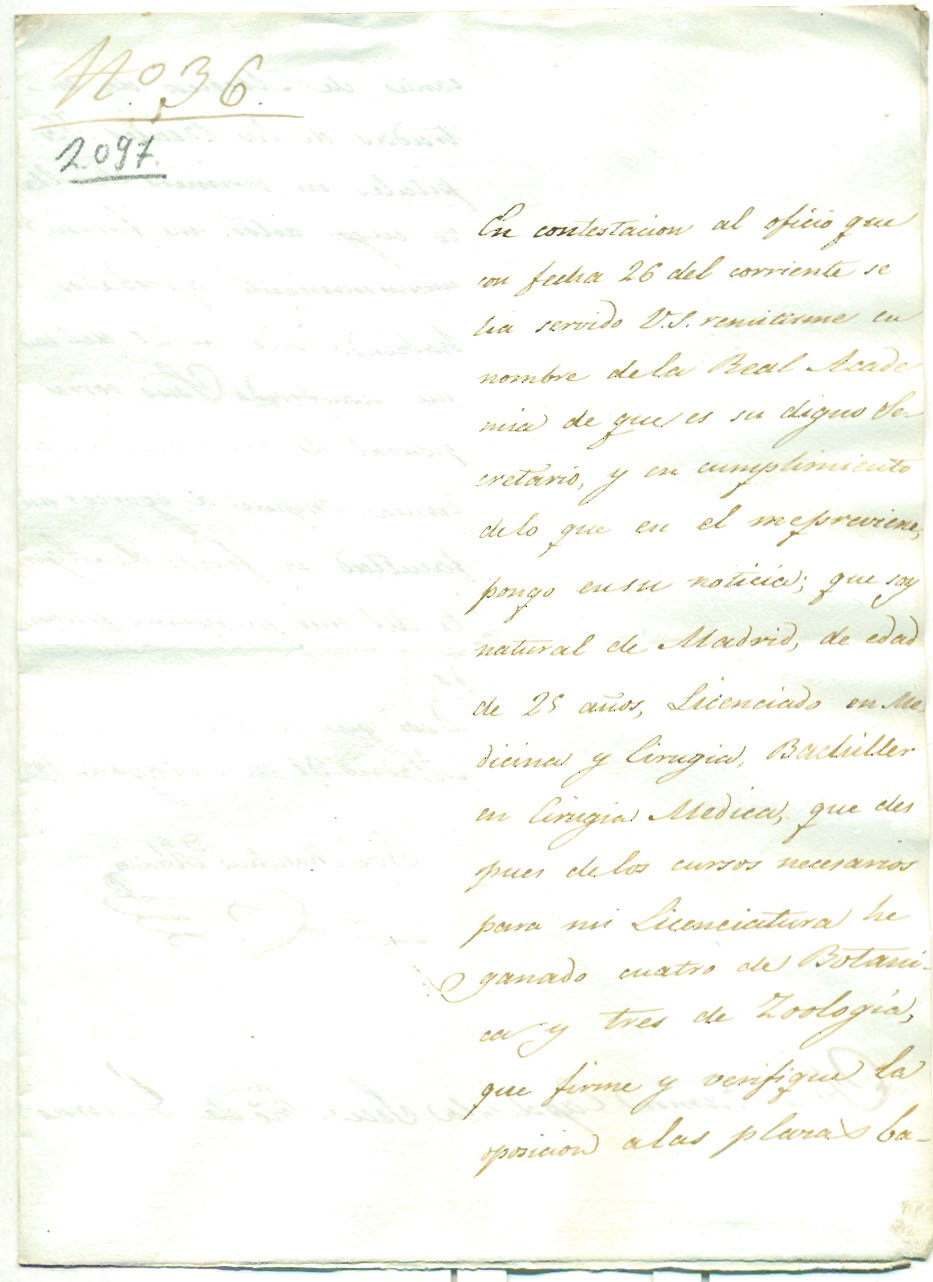 N.º 36.
2097.
En contestacion al oficio que
con fecha 26 del corriente se
ha servido V.S. remitirme en
nombre de la Real Acade
mia de que es su digno Se-
cretario, y en cumplimiento
delo que en el mepreviene,
pongo ensu noticia; que soy
natural de Madrid, de edad
de 25 años, Licenciado en Me
dicina y Cirugia, Bachiller
en Cirugia Medica, que des
pues de los cursos necesarios
para mi Licenciatura he
ganado cuatro de Botani-
ca y tres de Zoologia,
que firme y verifique la
oposicion alas plazas ba-